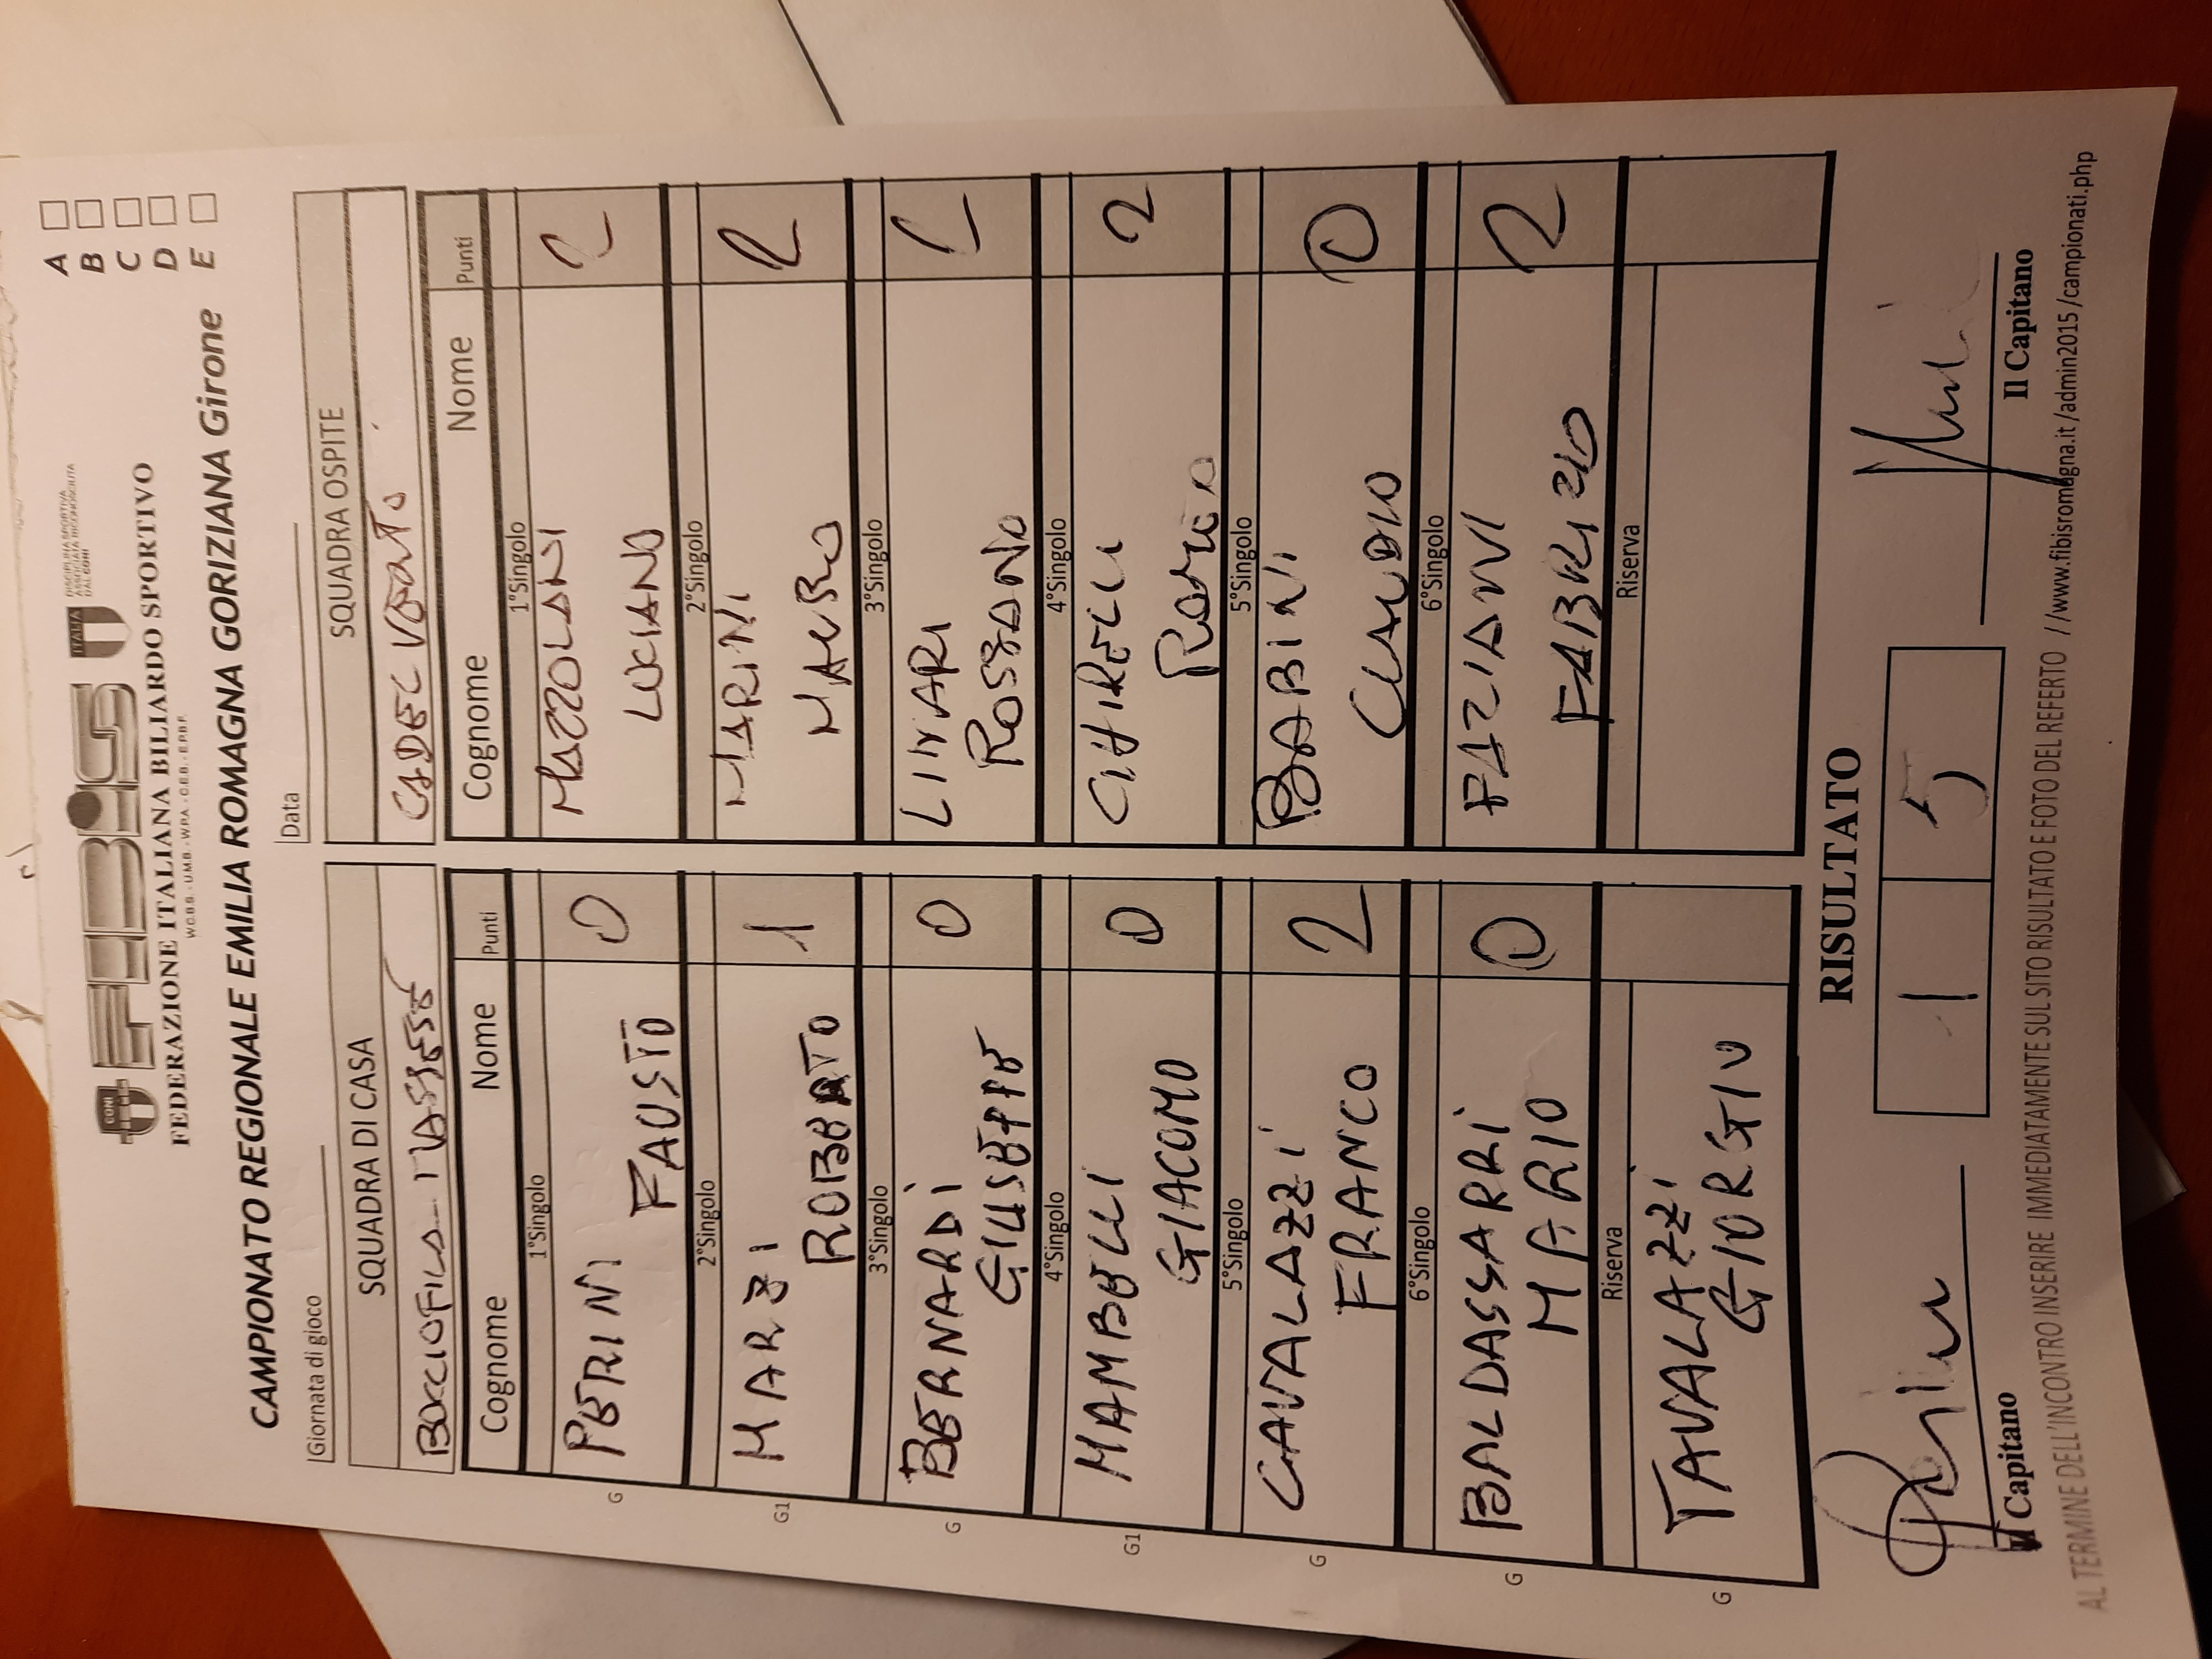 CONI
FEDERAZIONE ITALIANA BILIARDO SPORTIVO
W.C.B.S. - U.M.B. - W.P.A. - C.E.B. - E.P.B.F.
ITALIA
DISCIPLINA SPORTIVA
ASSOCIATA RICONOSCIUTA
DAL CONI
A
B
C
D
E
CAMPIONATO REGIONALE EMILIA ROMAGNA GORIZIANA Girone
Giornata di gioco
Data
SQUADRA DI CASA
BOCCIOFILA
SQUADRA OSPITE
Cognome Nome Punti
G
1°Singolo
PERINI
FAUSTO
0
G1
2°Singolo
MARZI
ROBERTO
1
G
3°Singolo
BERNARDI
GIUSEPPE
0
G1
4°Singolo
MAMBELLI
GIACOMO
0
G
5°Singolo
CAVALAZZI
FRANCO
2
G
6°Singolo
BALDASSARRI
MARIO
0
G
Riserva
TAVALAZZI
GIORGIO
Cognome Nome Punti
1°Singolo
MAZZOLANI
LUCIANO
2
2°Singolo
MARINI
MAURO
2
3°Singolo
ROSSANO
4°Singolo
2
5°Singolo
BABINI
CLAUDIO
0
6°Singolo
FAZIANI
FABRIZIO
2
Riserva
RISULTATO
1 5
Il Capitano
Il Capitano
AL TERMINE DELL'INCONTRO INSERIRE IMMEDIATAMENTE SUL SITO RISULTATO E FOTO DEL REFERTO //www.fibisromagna.it/admin2015/campionati.php